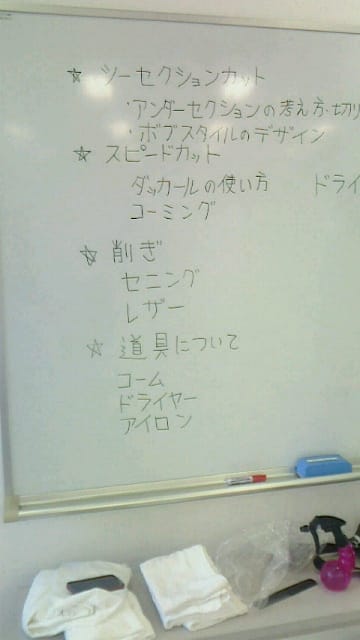 ☆ ツーセクションカット
・アンダーセクションの考え方・切り
・ボブスタイルのデザイン
☆ スピードカット
ダッカールの使い方 ドライ
コーミング
☆ 削ぎ
セニング
レザー
☆ 道具について
コーム
ドライヤー
アイロン